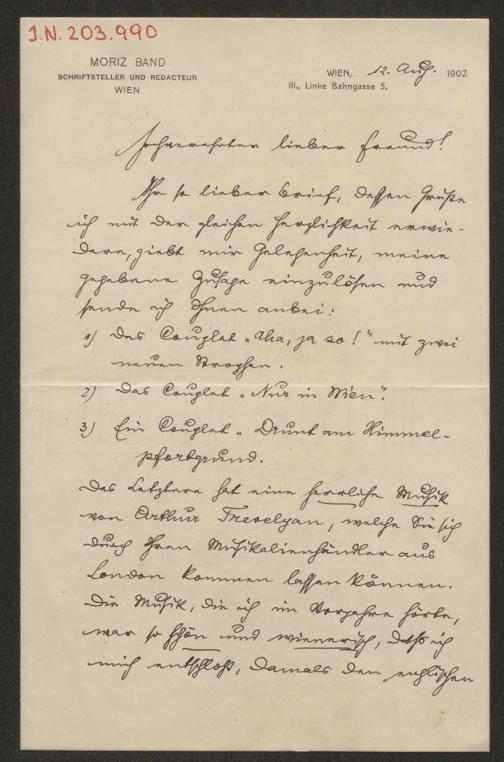 J.N. 203.990
MORIZ BAND
SCHRIFTSTELLER UND REDACTEUR
WIEN
WIEN, 12. Aug. 1902.
III., Linke Bahngasse 5.
Hochverehrter lieber Freund!
Ihr so lieber Brief, dessen Grüße
ich mit der gleichen Herzlichkeit erwie-
dere, giebt mir Gelegenheit, meine
gegebene Zusage einzulösen und
sende ich Ihnen anbei:
1) Das Couplet „Aha, ja so!" mit zwei
neuen Strophen.
2) Das Couplet „Nur in Wien".
3) Ein Couplet „Drunt am Himmel-
pfortgrund.
Das Letztere hat eine herrliche Musik
von Arthur Trevelyan, welche Sie sich
durch Ihren Musikalienhändler aus
London kommen lassen können.
Die Musik, die ich im Vorjahre hörte,
war so schön und wienerisch, daß ich
mich entschloß, damals den englischen